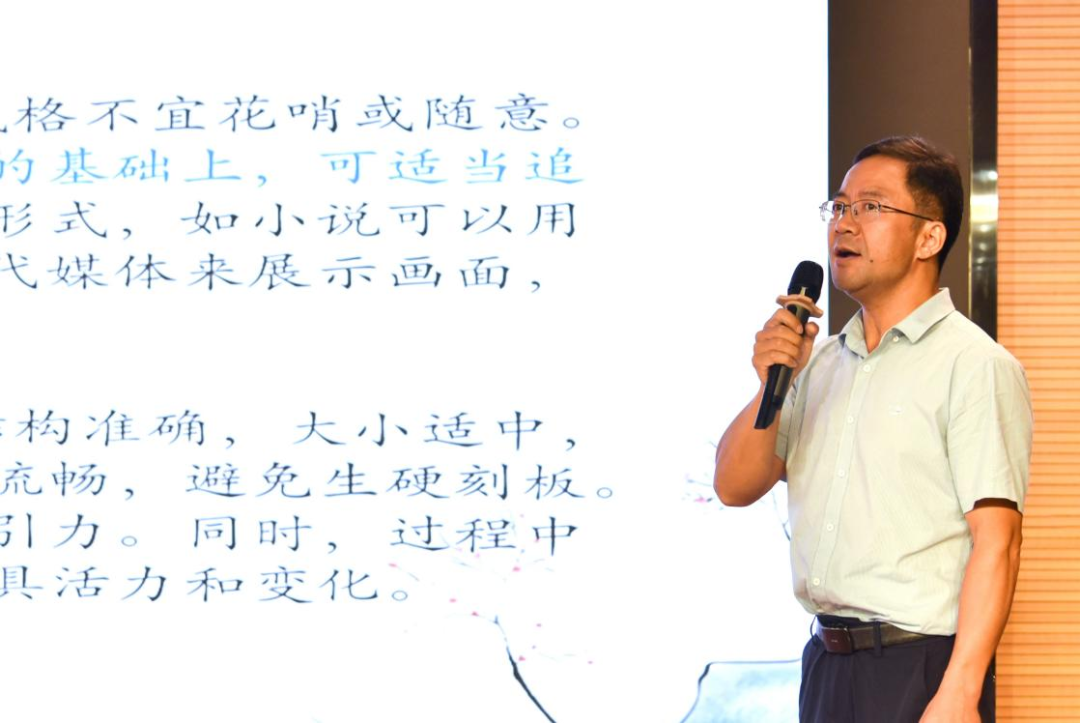 格不宜花哨或随意。
的基础上，可适当追
形式，如小说可以用
代媒体来展示画面，
构准确，大小适中，
流畅，避免生硬刻板。
引力。同时，过程中
具活力和变化。